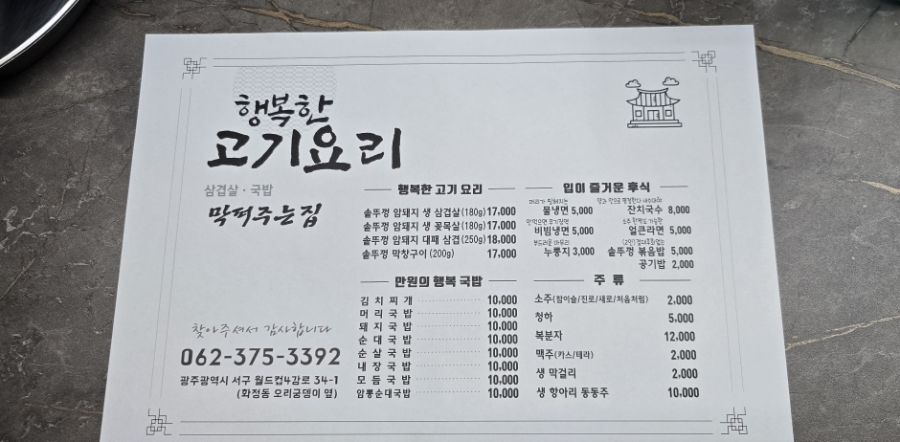 행복한
고기요리
삼겹살 · 국밥
막퍼주는집
찾아주셔서 감사합니다
062-375-3392
광주광역시 서구 월드컵4강로 34-1
(화정동 오리궁뎅이 옆)
행복한 고기 요리
솥뚜껑 암돼지 생 삼겹살(180g) 17,000
솥뚜껑 암돼지 생 꽃목살(180g) 17,000
솥뚜껑 암돼지 대패 삼겹(250g) 18,000
솥뚜껑 막창구이 (200g) 17,000
만원의 행복 국밥
김치찌개 10,000
머리국밥 10,000
돼지국밥 10,000
순대국밥 10,000
순살국밥 10,000
내장국밥 10,000
모듬국밥 10,000
암뽕순대국밥 10,000
입이 즐거운 후식
물냉면 5,000
비빔냉면 5,000
부드러운 마무리
누룽지 3,000
잔치국수 8,000
얼큰라면 5,000
솥뚜껑 볶음밥 5,000
공기밥 2,000
주 류
소주(참이슬/진로/새로/처음처럼) 2,000
청하 5,000
복분자 12,000
맥주(카스/테라) 2,000
생 막걸리 2,000
생 항아리 동동주 10,000